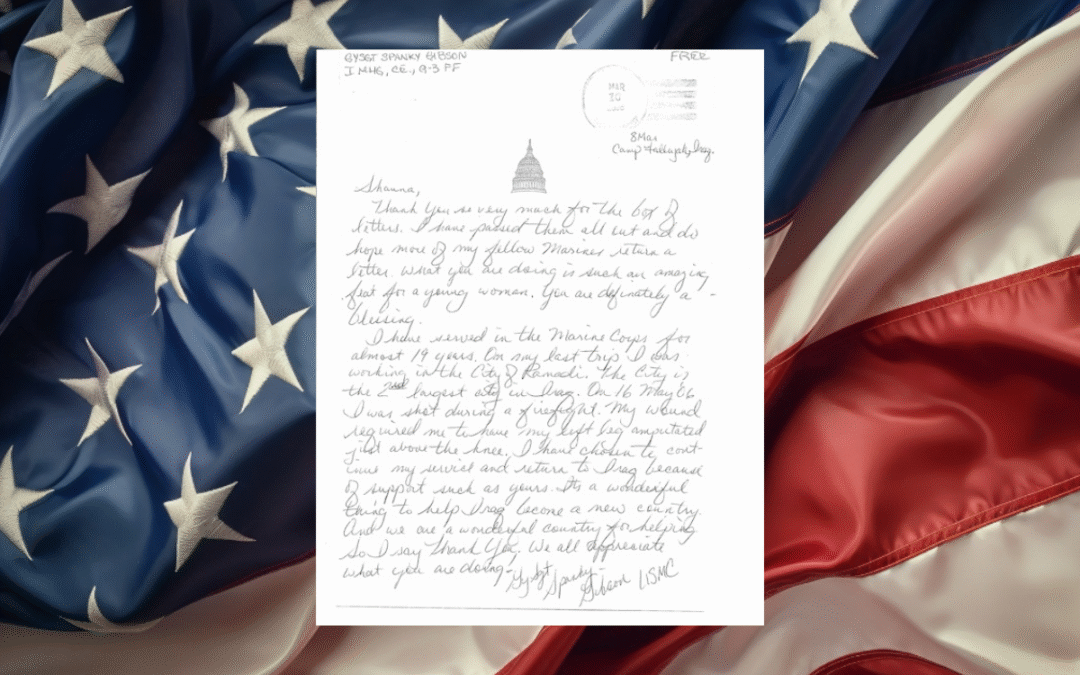 GYSGT SPANKY GIBSON
I MHG, CE., G-3 PF
FREE
MAR
10
8 Mar
Camp Fallujah, Iraq.
Shauna,
Thank You so very much for the box of
letters. I have passed them all out and do
hope more of my fellow Marines return a
letter. What you are doing is such an amazing
feat for a young woman. You are definately a -
blessing.
I have served in the Marine Corps for
almost 19 years. On my last trip I was
working in the City of Ramadi. The City is
the 2nd largest city in Iraq. On 16 May 06
I was shot during a firefight. My wound
required me to have my left leg amputated
just above the knee. I have chosen to cont-
inue my service and return to Iraq because
of support such as yours. Its a wonderful
thing to help Iraq become a new country.
And we are a wonderful country for helping.
So I say Thank You. We all appreciate
what you are doing - GySgt Spanky Gibson USMC